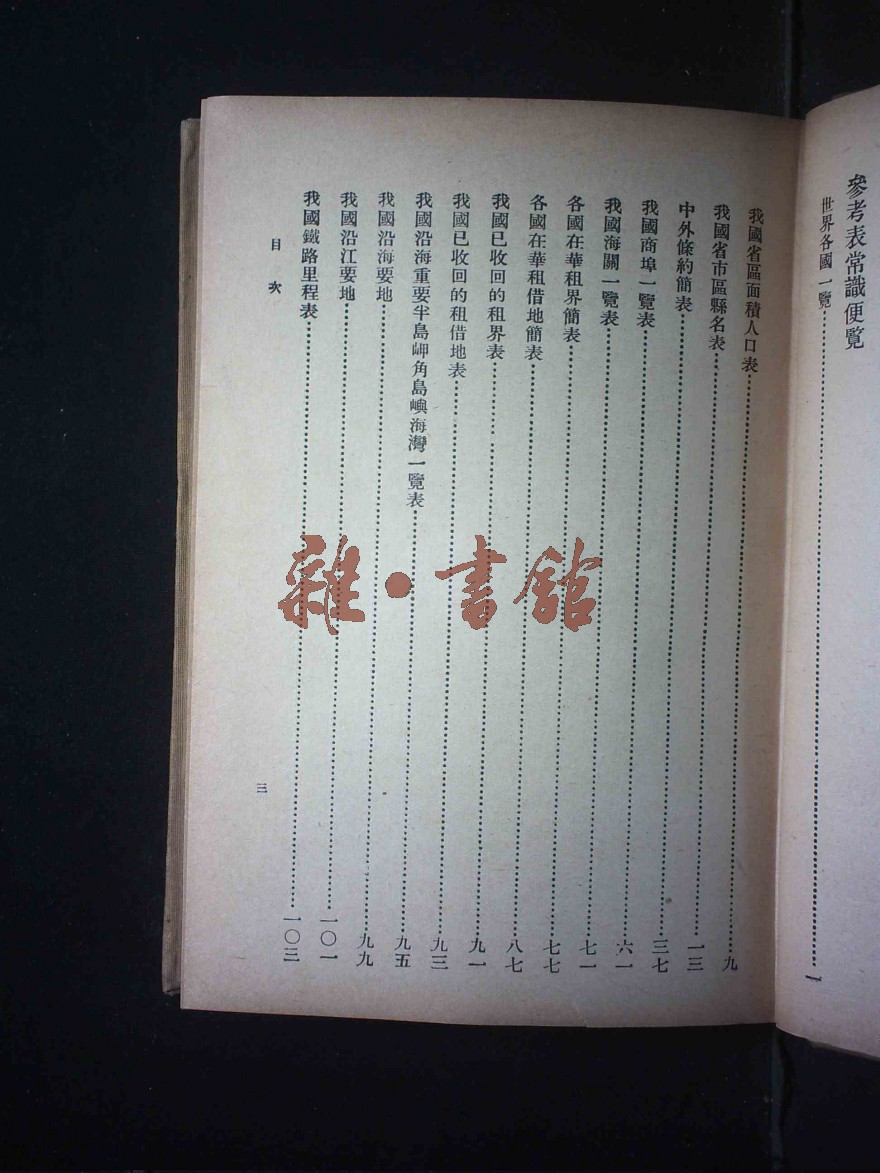 參考表常識便覽
世界各國一覽……一
我國省區面積人口表……九
我國省市區縣名表……一三
中外條約簡表……三七
我國商埠一覽表……六一
我國海關一覽表……七一
各國在華租界簡表……七七
各國在華租借地簡表……八七
我國已收回的租界表……九一
我國已收回的租借地表……九三
我國沿海重要半島岬角島嶼海灣一覽表……九五
我國沿海要地……九九
我國沿江要地……一〇一
我國鐵路里程表……一〇三
目次
三
雜·書館